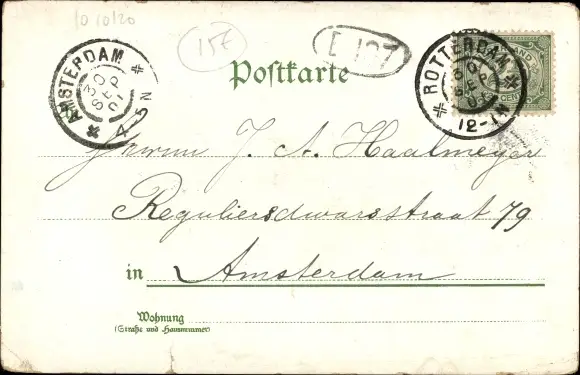 10 10/20
15E
E 197
AMSTERDAM
30
SEP
01
4-5N
Postkarte
ROTTERDAM
30
SEP
01
12-1N
CENT
J. A. Haalmeyer
Reguliersdwarsstraat 79
in Amsterdam
Wohnung
(Straße und Hausnummer)